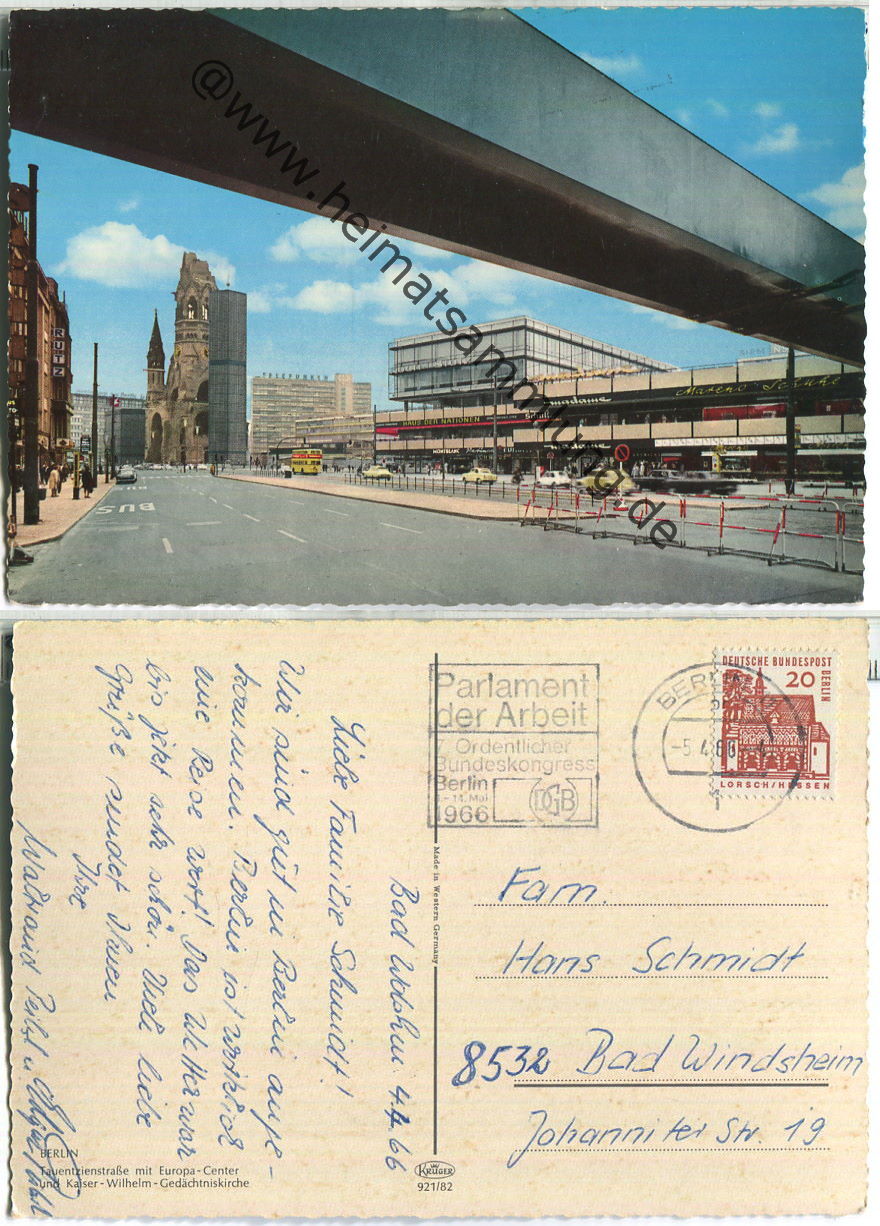 @www.heimatsammlung.de
RUTZ
BUS
TELEFUNKEN
HAUS DER NATIONEN
madame
Schuhe
MONTBLANC
Parlament
der Arbeit
7. Ordentlicher
Bundeskongress
Berlin
9.-14. Mai
1966
DGB
BERLIN
-5.4.66
DEUTSCHE BUNDESPOST
BERLIN
20
LORSCH/HESSEN
Bad 4.4.66
Liebe Familie Schmidt!
Wir sind gut in Berlin ange-
kommen. Berlin ist wirklich
eine Reise wert! Das Wetter war
bis jetzt sehr schön. Viele liebe
Grüße sendet Ihnen
Ihre
Waltraud
Made in Western Germany
Fam.
Hans Schmidt
8532 Bad Windsheim
Johanniter Str. 19
BERLIN
Tauentzienstraße mit Europa-Center
und Kaiser-Wilhelm-Gedächtniskirche
KRÜGER
921/82